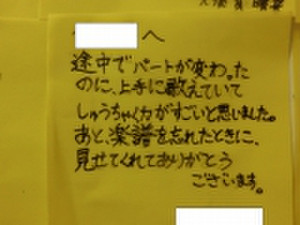 へ
途中でパートが変わった
のに、上手に歌えていて
しゅうちゃく力がすごいと思いました。
あと、楽譜を忘れたときに、
見せてくれてありがとう
ございます。